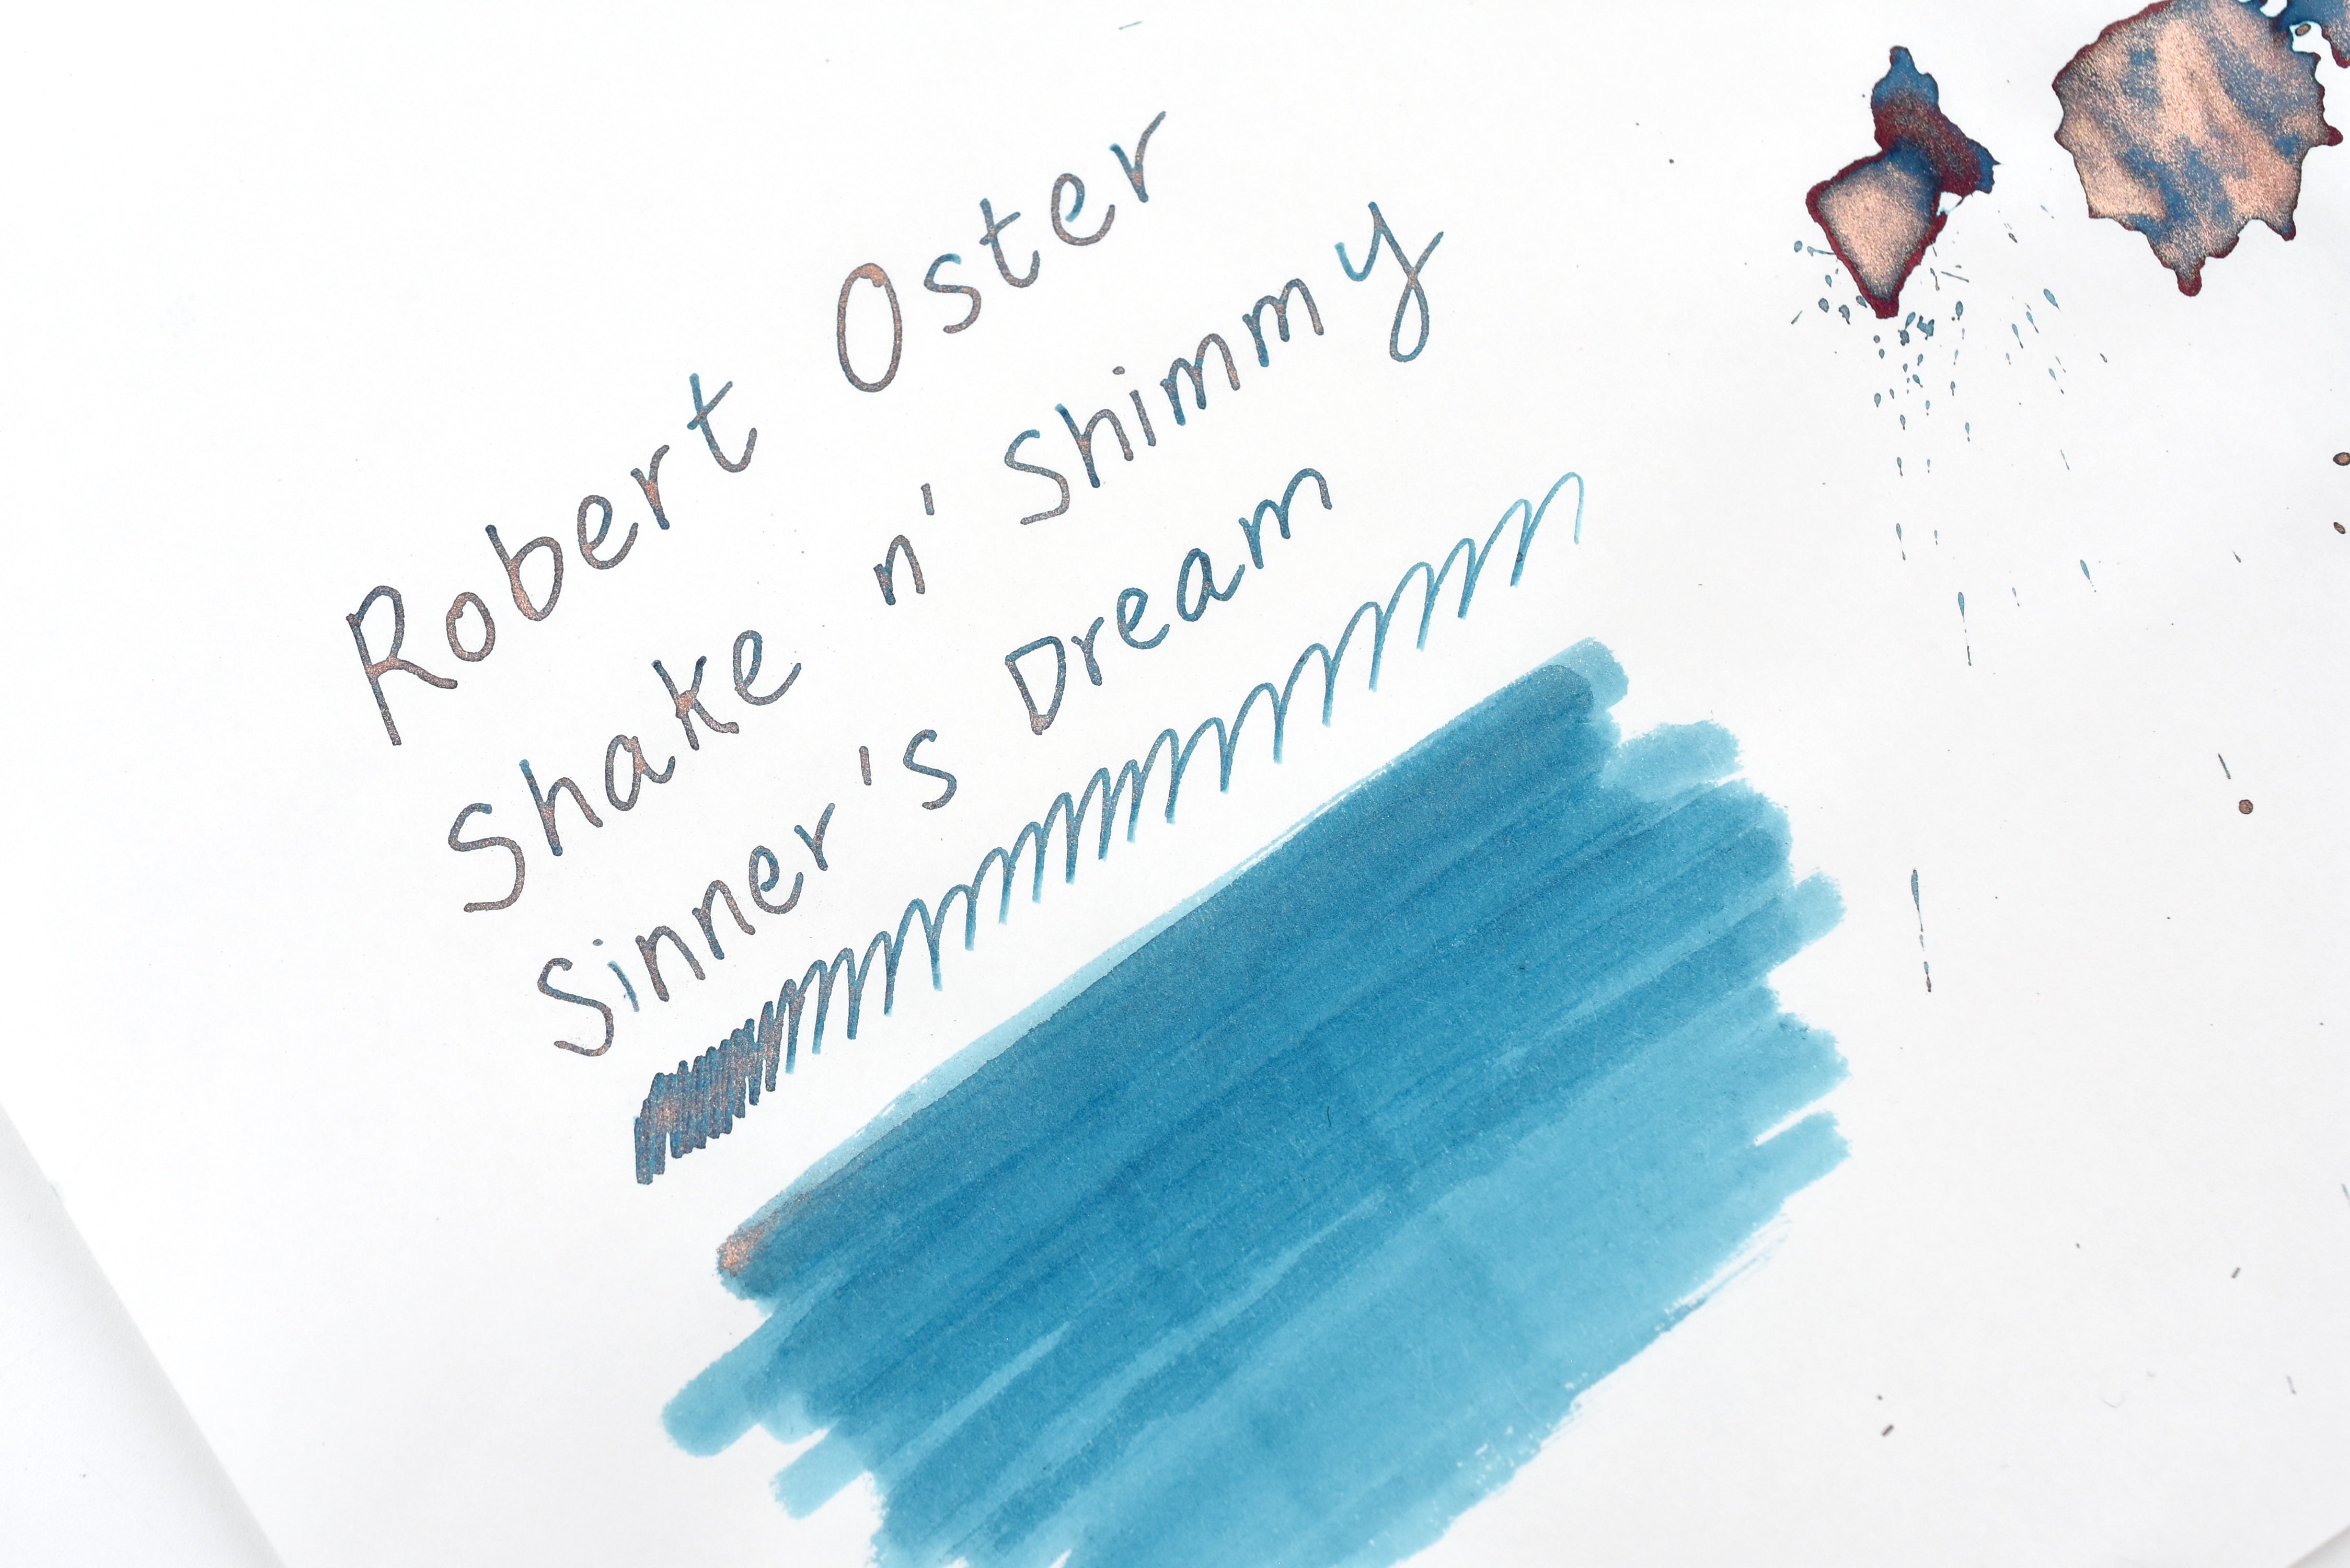 Robert Oster
Shake n' Shimmy
Sinner's Dream